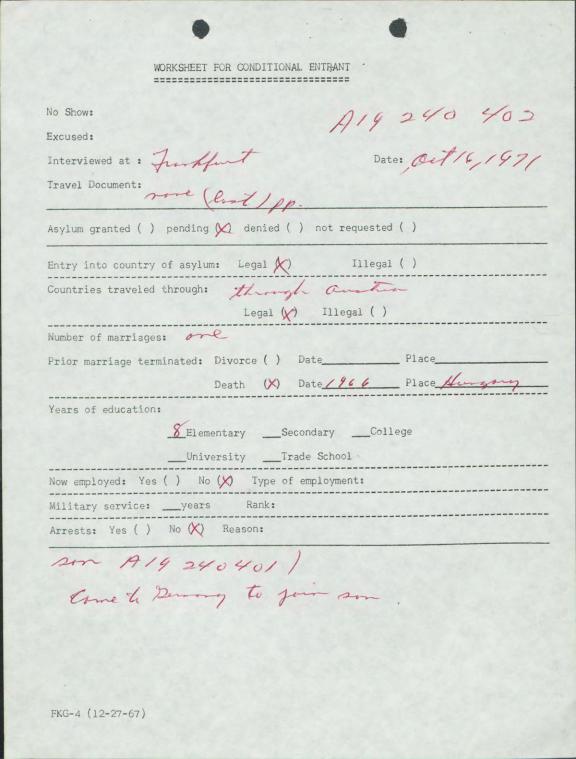 WORKSHEET FOR CONDITIONAL ENTRANT
No Show:
A19 240 402
Excused:
Interviewed at : Frankfurt Date: Oct 16, 1971
Travel Document: none (lost) pp.
Asylum granted ( ) pending (X) denied ( ) not requested ( )
Entry into country of asylum: Legal (X) Illegal ( )
Countries traveled through: through Austria
Legal (X) Illegal ( )
Number of marriages: one
Prior marriage terminated: Divorce ( ) Date Place
Death (X) Date 1966 Place Hungary
Years of education:
8 Elementary ___Secondary ___College
___University ___Trade School
Now employed: Yes ( ) No (X) Type of employment:
Military service: ___years Rank:
Arrests: Yes ( ) No (X) Reason:
son A19 240401)
Come to Germany to join son
FKG-4 (12-27-67)